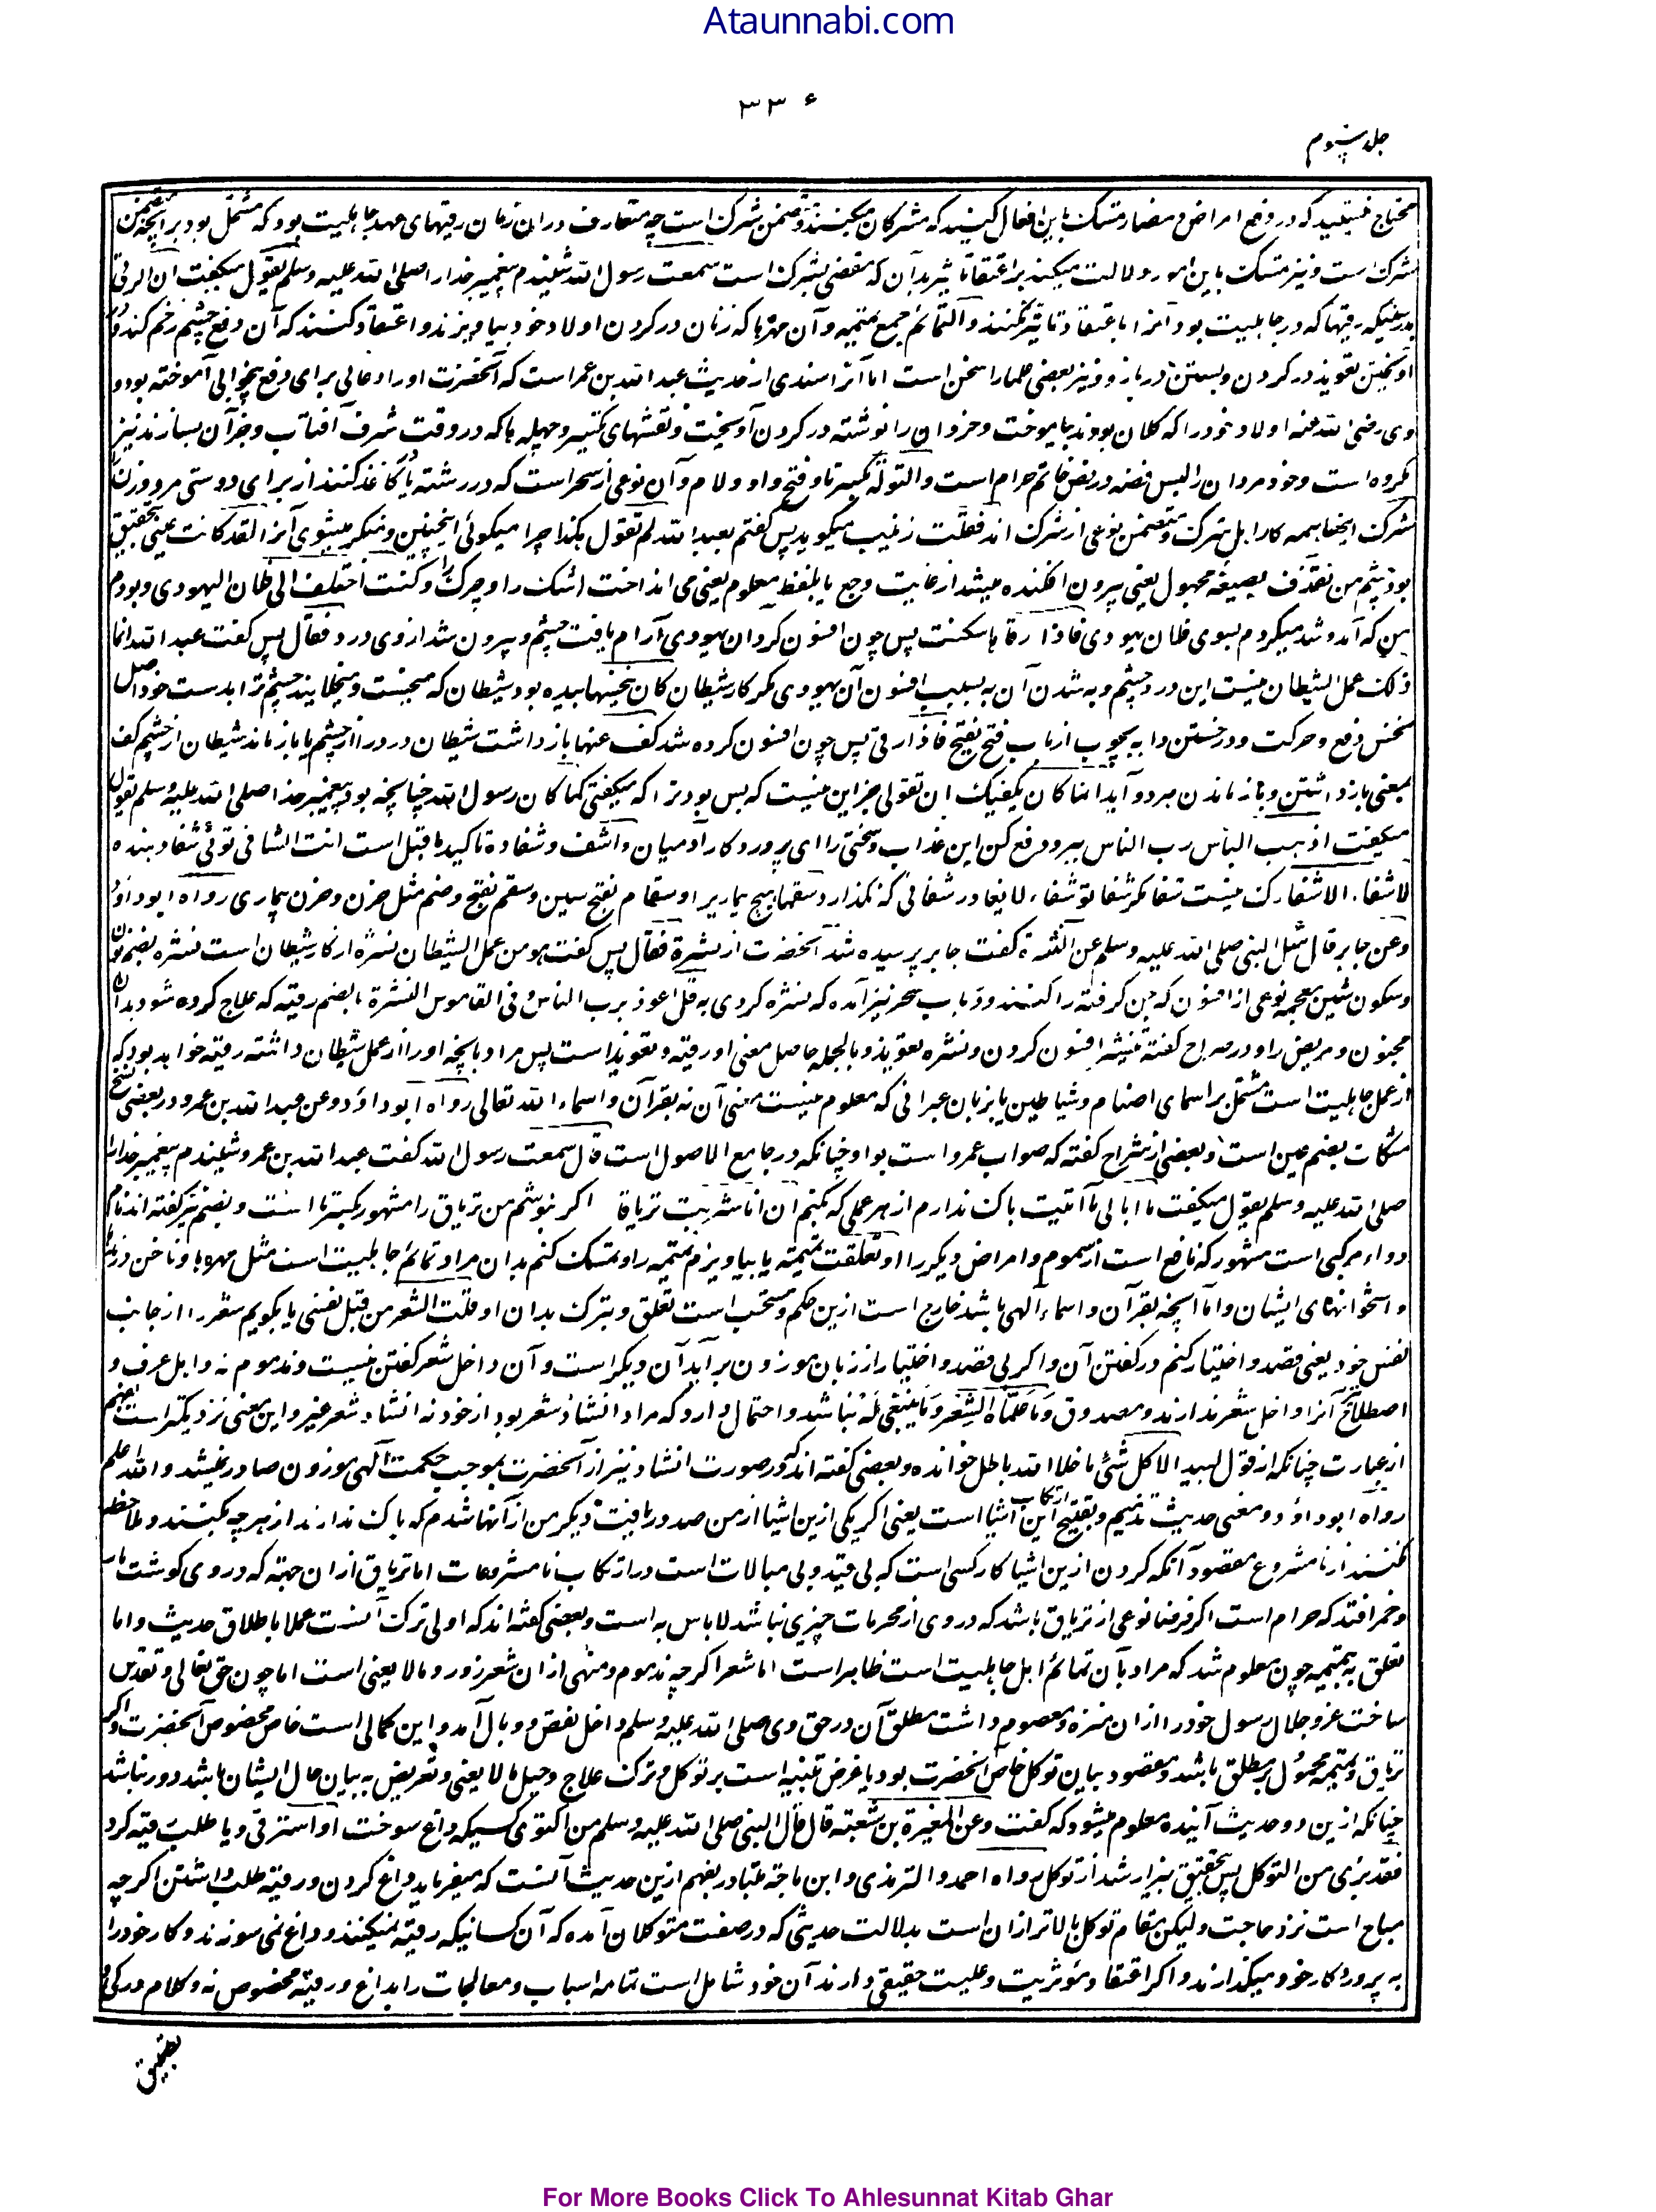 Ataunnabi.com
۳۳۶
جلد سوم
محتاج نیستید که در دفع امراض و مضار تمسک باین افعال کنید که مشرکان میکنند و متضمن شرک است چه متعارف در ان زمان رقیتهای عهد جاهلیت بود که مشتمل بود بر آنچه متضمن
شرک است و نیز تمسک باین امور دلالت میکند بر اعتقاد تاثیر بدان که مفضی بشرک است سمعت رسول الله شنیدم پیغمبر خدا را صلی الله علیه وسلم یقول میگفت ان الرقی
بدرستیکه رقیتها که در جاهلیت بود آنرا باعتقاد تاثیر کنند والتمائم جمع تمیمه و آن مهره‌ها که زنان در گردن اولاد خود بیاویزند و اعتقاد کنند که آن دفع چشم زخم کند و
آویختن تعویذ در گردن و بستن در بازو و نیز بعضی علما را سخن است اما آنرا سندی از حدیث عبد الله بن عمر است که آنحضرت او را دعائی برای دفع بیخوابی آموخته بود و
وی رضی الله عنه اولاد خود را که کلان بودند بیاموخت و خردان را نوشته در گردن آویخت و نقشهای تکسیر و حیله ها که در وقت شرف آفتاب و جز آن بسازند نیز
مکروه است و خود مردان را لبس فضه در غیر خاتم حرام است والتوله بکسر تا و فتح واو و لام و آن نوعی از سحر است که در رشته یا کاغذ کنند از برای دوستی مرد و زن
شرک اینها همه کار اهل شرک و متضمن نوعی از شرک اند فقلت زینب میگوید پس گفتم بعبد الله لم تقول هکذا چرا میگوئی اینچنین و منکر میشوی آنرا لقد کانت عینی بتحقیق
بود چشم من تقذف بصیغه مجهول یعنی بیرون افکنده میشد از غایت وجع یا بلفظ معلوم یعنی می انداخت اشک را و چرک را و کنت اختلف الی فلان الیهودی و بودم
من که آمد و شد میکردم بسوی فلان یهودی فاذا رقاها سکنت پس چون افسون کرد آن یهودی آرام یافت چشم و بیرون شد از وی درد فقال پس گفت عبد الله انما
ذلک عمل الشیطان نیست این درد چشم و به شدن آن به سبب افسون آن یهودی مگر کار شیطان کان ینخسها بیده بود شیطان که میخست و میخلانید چشم ترا بدست خود اصل
نخس دفع و حرکت و در خستن دابه بچوب از باب فتح یفتح فاذا رقی پس چون افسون کرده شد کف عنها باز داشت شیطان درد را از چشم یا باز ماند شیطان از چشم کف
بمعنی باز داشتن و باز ماندن هر دو آید انما کان یکفیک ان تقولی جز این نیست که بس بود ترا که میگفتی کما کان رسول الله چنانچه بود پیغمبر خدا صلی الله علیه وسلم یقول
میگفت اذهب الباس رب الناس ببر و دفع کن این عذاب و سختی را ای پروردگار آدمیان واشف و شفا ده تاکید ماقبل است انت الشافی توئی شفا دهنده
لا شفاء الا شفاءک نیست شفا مگر شفا تو شفاء لا یغادر شفائی که نگذارد سقما هیچ بیماری را و سقام بفتح سین و سقم بفتح و ضم مثل حزن و حزن بیماری رواه ابو داؤد
وعن جابر قال سئل النبی صلی الله علیه وسلم عن النشرة گفت جابر پرسیده شد آنحضرت از نشره فقال پس گفت هو من عمل الشیطان نشره از کار شیطان است نشره بضم نون
و سکون شین معجمه نوعی از افسون که جن گرفته را کنند و در باب سحر نیز آمده که نشره کردی به قل اعوذ برب الناس و فی القاموس النشرة بالضم رقیه که علاج کرده شود بدان
مجنون و مریض را و در صراح گفته تنشیر افسون کردن و نشره تعویذ و بالجمله حاصل معنی او رقیه و تعویذ است پس مراد بانچه او را از عمل شیطان داشته رقیه خواهد بود که
از عمل جاهلیت است مشتمل بر اسمای اصنام و شیاطین یا بزبان عبرانی که معلوم نیست معنی آن نه بقرآن و اسماء الله تعالی رواه ابو داؤد وعن عبد الله بن عمر و در بعضی نسخ
مشکات بضم عین است و بعضی از شراح گفته که صواب عمرو است بواو چنانکه در جامع الاصول است قال سمعت رسول الله گفت عبد الله بن عمرو شنیدم پیغمبر خدا را
صلی الله علیه وسلم یقول میگفت ما ابالی ما اتیت باک ندارم از هر عملی که بکنم ان انا شربت تریاقا اگر بنوشم من تریاق را مشهور بکسر تا است و بضم نیز گفته اند نام
دواء مرکبی است مشهور که نافع است از سموم و امراض دیگر را او تعلقت تمیمة یا بیاویزم تمیمه را و تمسک کنم بدان مراد تمائم جاهلیت است مثل مهره ها و ناخن درندگان
و استخوانهای ایشان و اما آنچه بقرآن و اسماء الهی باشد خارج است ازین حکم و مستحب است تعلق و تبرک بدان او قلت الشعر من قبل نفسی یا بگویم شعر را از جانب
نفس خود یعنی قصد و اختیار کنم در گفتن آن و اگر بی قصد و اختیار از زبان موزون برآید آن دیگر است و آن داخل شعر گفتن نیست و مذموم نه و اهل عرف و
اصطلاح آنرا داخل شعر ندارند و مصدوق وَمَا عَلَّمْنَاهُ الشِّعْرَ وَمَا یَنْبَغِی لَهُ نباشد و احتمال دارد که مراد انشاء شعر بود از خود نه انشاد شعر غیر و این معنی نزدیکتر است بفهم
از عبارت چنانکه از قول لبید الا کل شئ ما خلا الله باطل خوانده و بعضی گفته اند که در صورت انشاد نیز از آنحضرت بموجب حکمت الهی موزون صادر نمیشد و الله اعلم
رواه ابو داؤد و معنی حدیث تذمیم و تقبیح ارتکاب این اشیا است یعنی اگر یکی ازین اشیا از من صدور یافت دیگر من از آنها شدم که باک ندارند از هر چه بکنند و ملاحظه
نکنند از نامشروع مقصود آنکه کردن ازین اشیا کار کسی است که بی قید و بی مبالات است در ارتکاب نامشروعات اما تریاق از ان جهته که در وی گوشت مار
و خمر افتد که حرام است اگر فرضا نوعی از تریاق باشد که در وی از محرمات چیزی نباشد لا باس به است و بعضی گفته اند که اولی ترک آنست عملا باطلاق حدیث و اما
تعلق به تمیمه چون معلوم شد که مراد بآن تمائم اهل جاهلیت است ظاهر است اما شعر اگر چه مذموم و منهی از ان شعر زور و مالا یعنی است اما چون حق تعالی و تقدس
ساحت عز و جلال رسول خود را از ان منزه و معصوم داشت مطلق آن در حق وی صلی الله علیه وسلم داخل نقص و وبال آمد و این کمالی است خاص مخصوص آنحضرت و اگر
تریاق و تمیمه محمول بر مطلق باشد و مقصود بیان توکل خاص آنحضرت بود یا غرض تنبیه است بر توکل و ترک علاج و حیل مالا یعنی و تعریض به بیان حال ایشان باشد دور نباشد
چنانکه ازین دو حدیث آینده معلوم میشود که گفت وعن المغیرة بن شعبة قال قال النبی صلی الله علیه وسلم من اکتوی کسیکه داغ سوخت او استرقی و یا طلب رقیه کرد
فقد برئ من التوکل پس بتحقیق بیزار شد از توکل رواه احمد والترمذی وابن ماجة متبادر بفهم ازین حدیث آنست که میفرماید داغ کردن و رقیه طلب داشتن اگر چه
مباح است نزد حاجت و لیکن مقام توکل بالاتر از ان است بدلالت حدیثی که در صفت متوکلان آمده که آن کسانیکه رقیه نمیکنند و داغ نمی سوزند و کار خود را
به پروردگار خود میگذارند و اگر اعتقاد مؤثریت و علیت حقیقی دارند آن خود شامل است تمامه اسباب و معالجات را بداغ و رقیه مخصوص نه و کلام در کی و
تطبیق
For More Books Click To Ahlesunnat Kitab Ghar